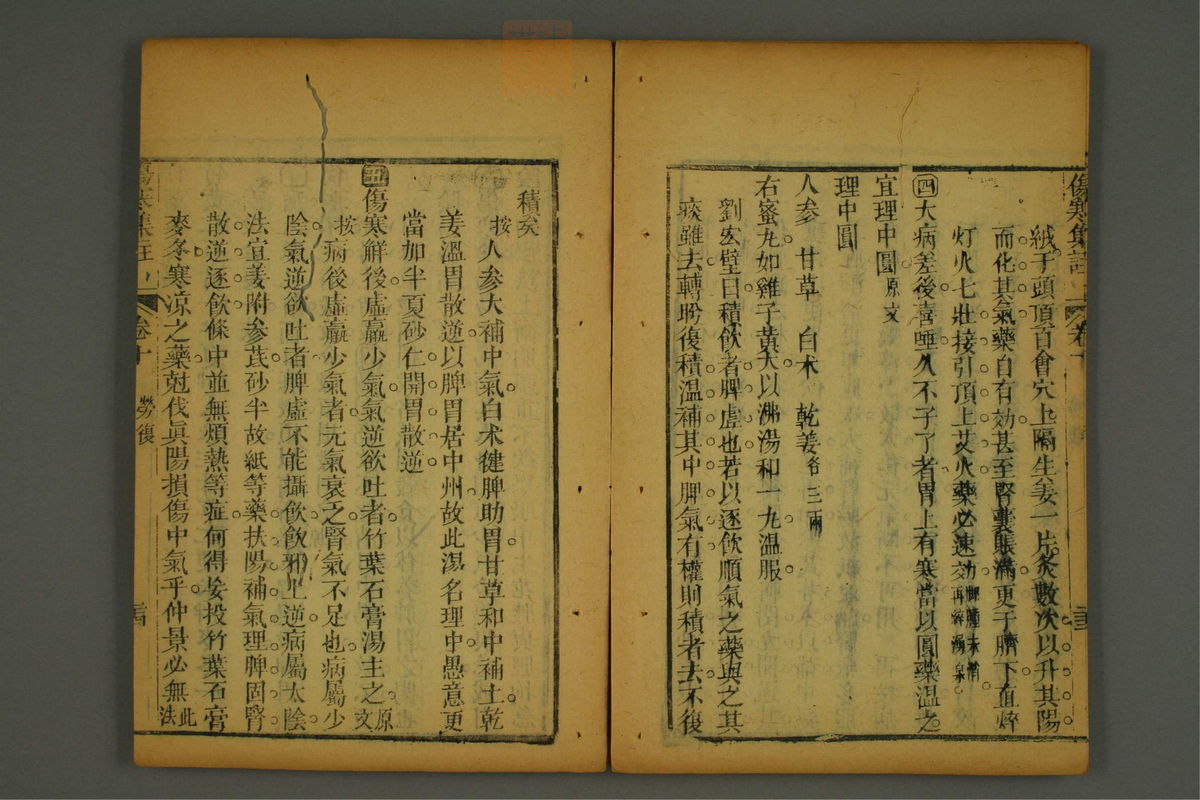 傷寒集註 卷十 三
絨于頭頂百會穴上隔生姜一片灸數次以升其陽
而化其氣藥自有効甚至腎囊脹滿更于臍下直焠
灯火七壯接引頂上艾火藥必速効
四大病差後喜唾久不了了者胃上有寒當以圓藥溫之
宜理中圓原文
理中圓
人参 甘草 白术 乾姜各三兩
右蜜丸如雞子黃大以沸湯和一丸温服
劉宏壁曰積飲者脾虛也若以逐飲順氣之藥與之其
痰雖去轉盻復積温補其中脾氣有權則積者去不復
積矣
按人参大補中氣白术健脾助胃甘草和中補土乾
姜溫胃散逆以脾胃居中州故此湯名理中愚意更
當加半夏砂仁開胃散逆
五傷寒解後虛羸少氣氣逆欲吐者竹葉石膏湯主之原文
按病後虛羸少氣者元氣衰之腎氣不足也病屬少
陰氣逆欲吐者脾虛不能攝飲飲邪上逆病屬太陰
法宜姜附参茋砂半故紙等藥扶陽補氣理脾固腎
散逆逐飲條中並無煩熱等症何得妄投竹葉石膏
麥冬寒凉之藥尅伐眞陽損傷中氣乎仲景必無此法
傷寒集註 卷十 勞復